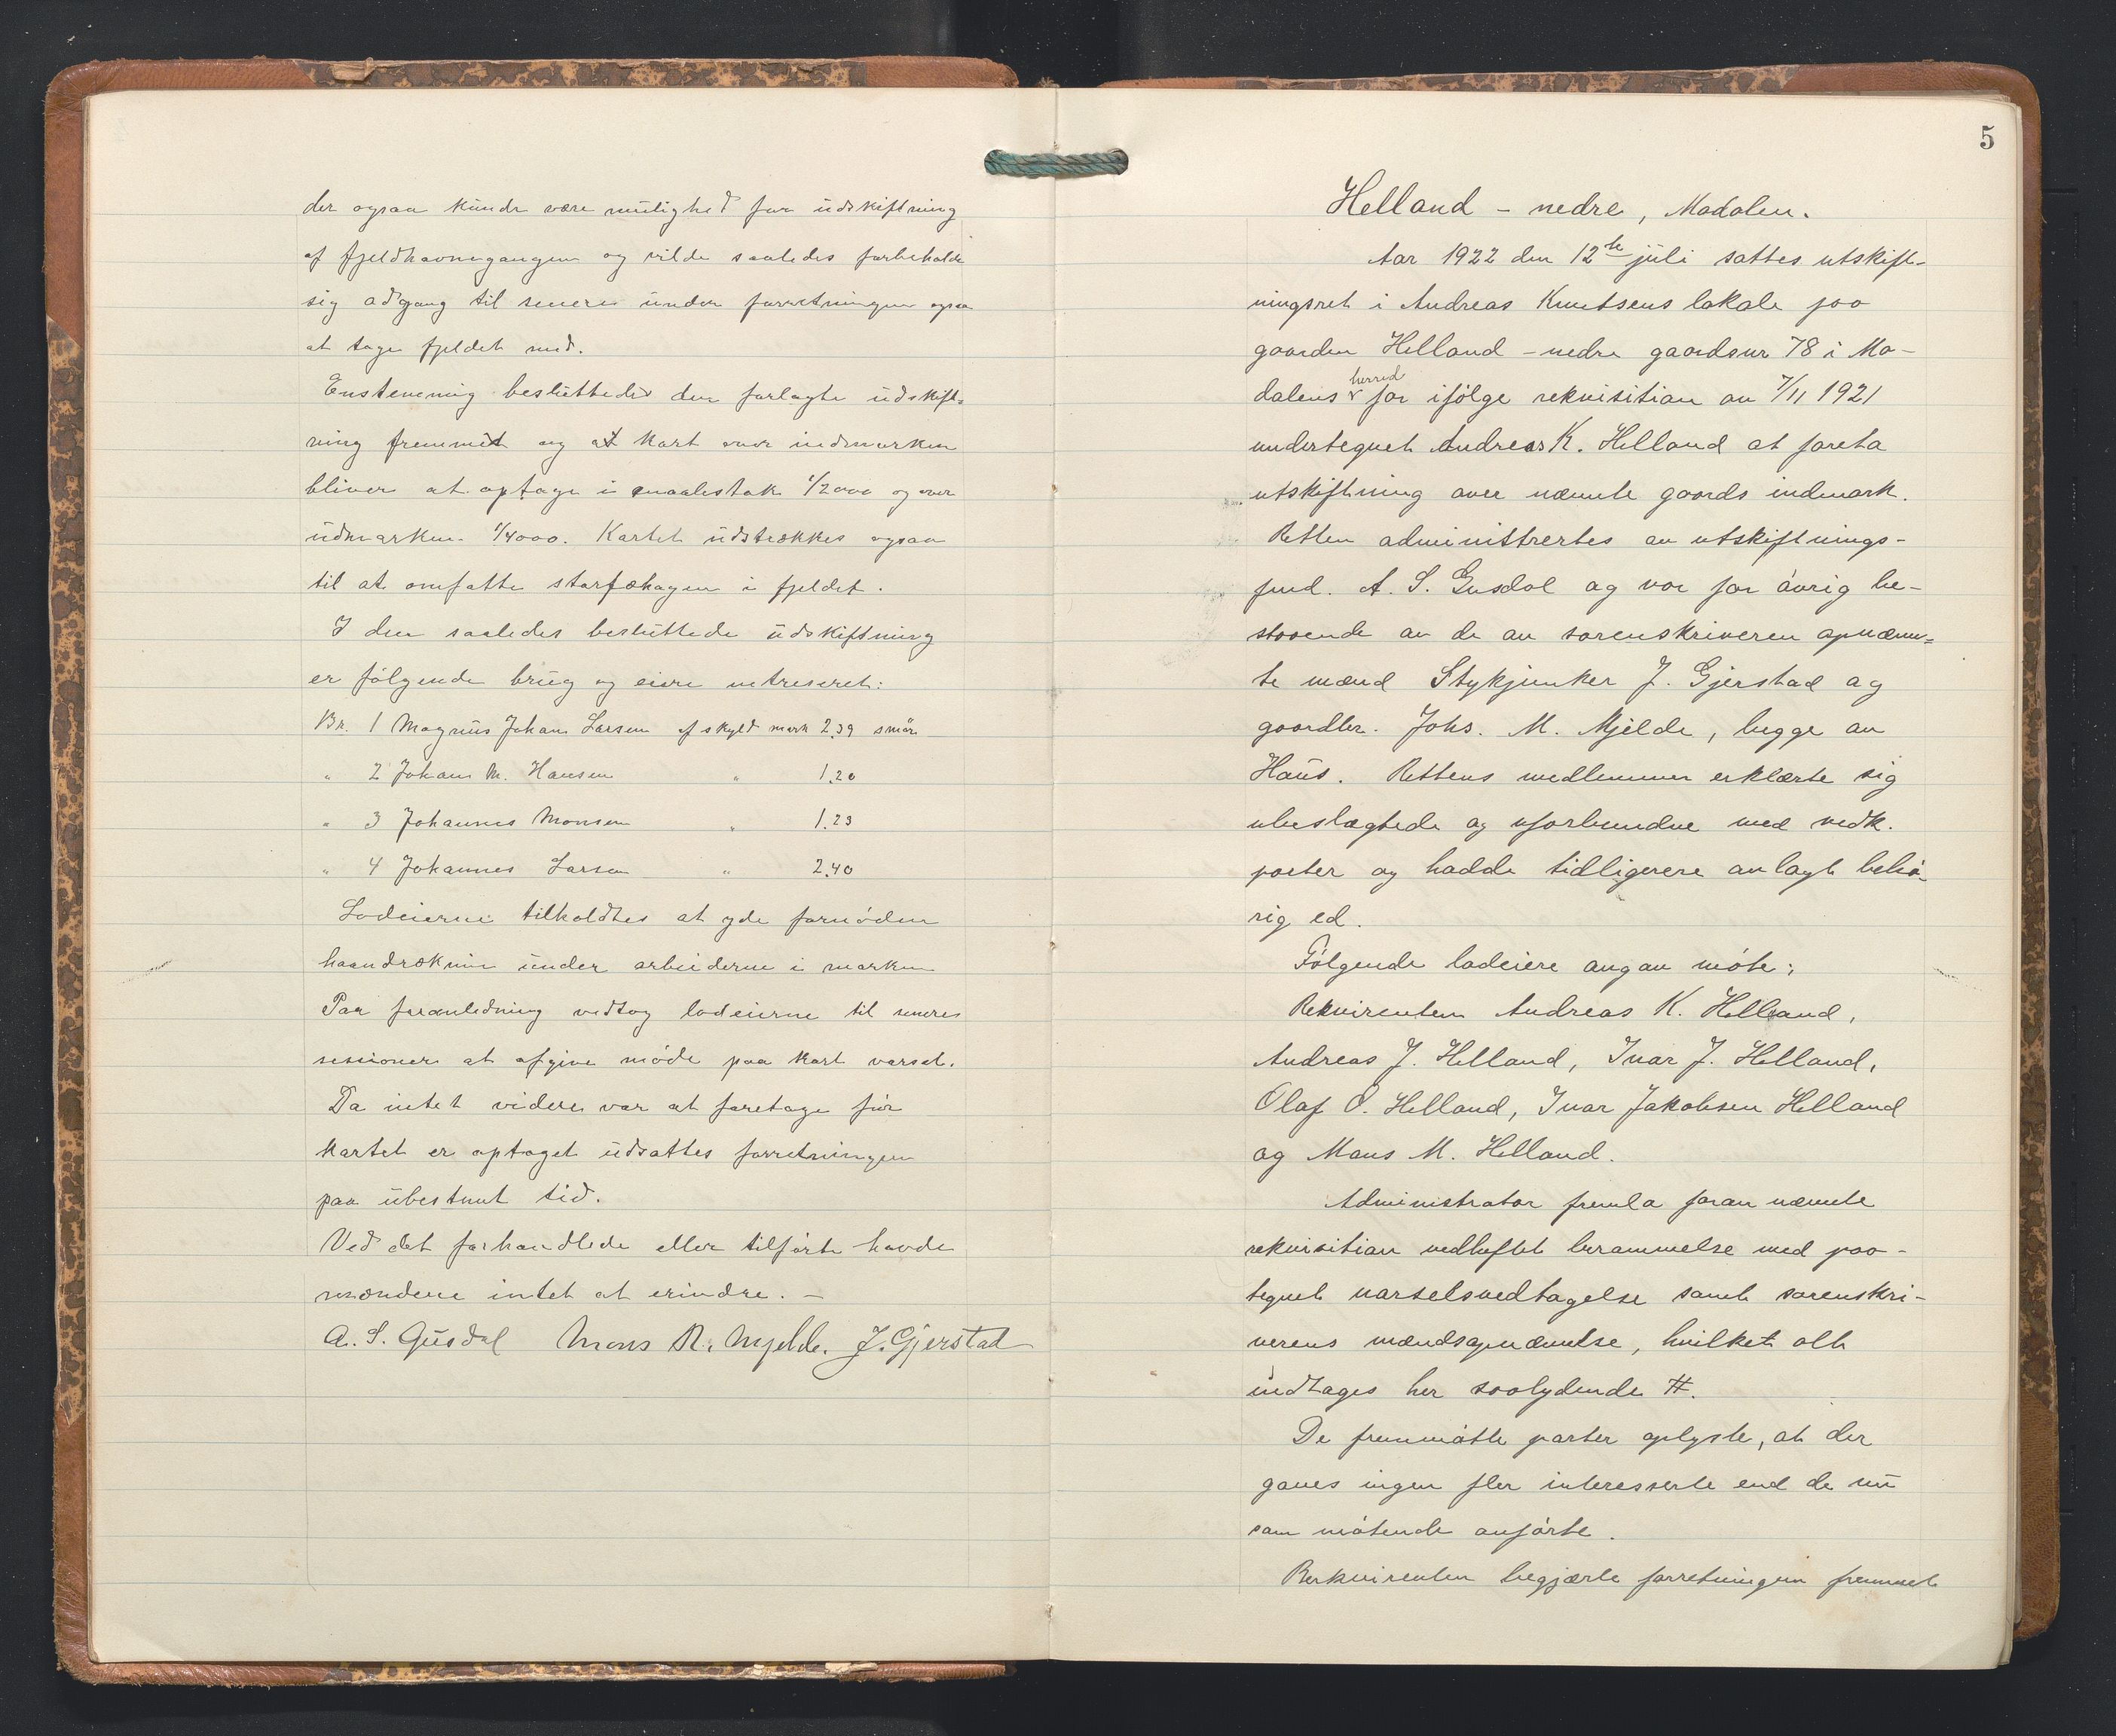 der ogsaa kunde være mulighed for udskiftning
af fjeldhavnegangen og vilde saaledes forbeholde
sig adgang til senere under forretningen ogsaa
at tage fjeldet med.
Enstemmig besluttedes den forlagte udskift-
ning fremmet og at kart over indmarken
bliver at optage i maalestok 1/2000 og over
udmarken 1/4000. Kartet udstrækkes ogsaa
til at omfatte storfæhagen i fjeldet.
I den saaledes besluttede udskiftning
er følgende brug og eiere intreseret:
Br. 1 Magnus Johan Larsen af skyld mark 2,39 smør
" 2 Johans M. Hansen " 1.20
" 3 Johannes Monsen " 1.23
" 4 Johannes Larsen " 2,40
Lodeierne tilholdtes at yde fornøden
haandrækning under arbeiderne i marken
Paa foranledning vedtog lodeierne til senere
sessioner at afgive møde paa kort varsel.
Da intet videre var at foretage før
kartet er optaget udsattes forretningen
paa ubestemt tid.
Ved det forhandlede eller tilførte havde
mændene intet at erindre. —
A. S. Gusdal Mons R. Mjelde. J. Gjerstad
5
Helland - nedre, Modalen.
Aar 1922 den 12te juli sattes utskift-
ningsret i Andreas Knutsens lokale paa
gaarden Helland - nedre gaardsnr 78 i Mo-
dalens herred for ifølge rekvisition av 7/11 1921
undertegnet Andreas K. Helland at foreta
utskiftning over nævnte gaards indmark.
Retten administrertes av utskiftnings-
fmd. A. S. Gusdal og var for øvrig be-
staaende av de av sorenskriveren opnævn-
te mænd Stykjunker J. Gjerstad og
gaardbr. Johs. M. Mjelde, begge av
Haus. Rettens medlemmer erklærte sig
ubeslægtede og uforbundne med vedk.
parter og hadde tidligerere avlagt behø-
rig ed.
Følgende lodeiere angav møte:
Rekvirenten Andreas K. Helland,
Andreas J. Helland, Ivar J. Helland,
Olaf O. Helland, Ivar Jakobsen Helland
og Mons M. Helland.
Administrator fremla foran nævnte
rekvisition vedheftet berammelse med paa-
tegnet varselsvedtagelse samt sorenskri-
verens mændsopnævnelse, hvilket alt
indtages her saalydende #.
De fremmøtte parter oplyste, at der
gaves ingen fler interesserte end de nu
som møtende anførte.
Rekvirenten begjærte forretningen fremmet